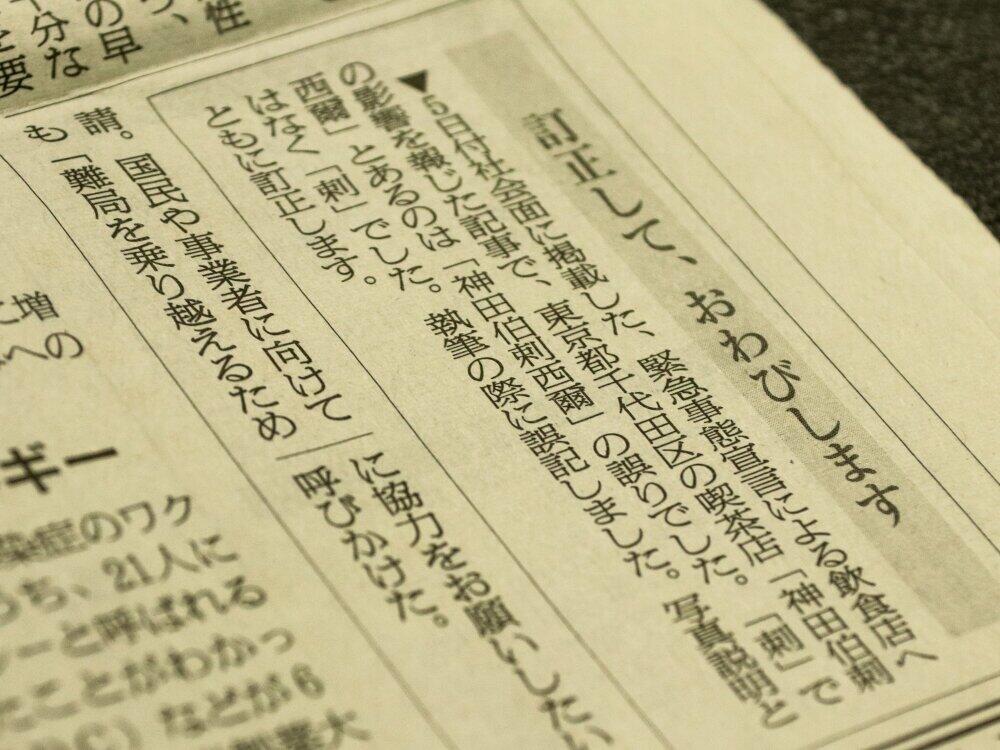 性
の早
分な
要
訂正して、おわびします
▼5日付社会面に掲載した、緊急事態宣言による飲食店へ
の影響を報じた記事で、東京都千代田区の喫茶店「神田伯刺
西爾」とあるのは「神田伯剌西爾」の誤りでした。「刺」で
はなく「剌」でした。執筆の際に誤記しました。写真説明と
ともに訂正します。
請。国民や事業者に向けて
も「難局を乗り越えるため
に協力をお願いしたい
呼びかけた。
に増
への
ギー
染症のワク
うち、21人に
ーと呼ばれる
たことがわかっ
C）などが6